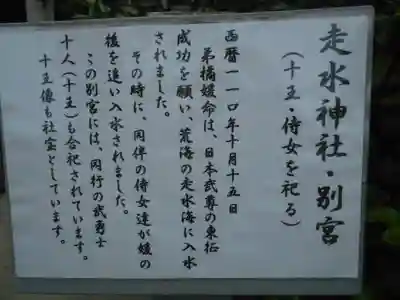 走水神社・別宮
(十王・侍女を祀る)
西暦一一〇年十月十五日
弟橘媛命は、日本武尊の東征
成功を願い、荒海の走水海に入水
されました。
その時に、同伴の侍女達が媛の
後を追い入水されました。
この別宮には、同行の武勇士
十人(十王)も合祀されています。
十王像も社宝としています。